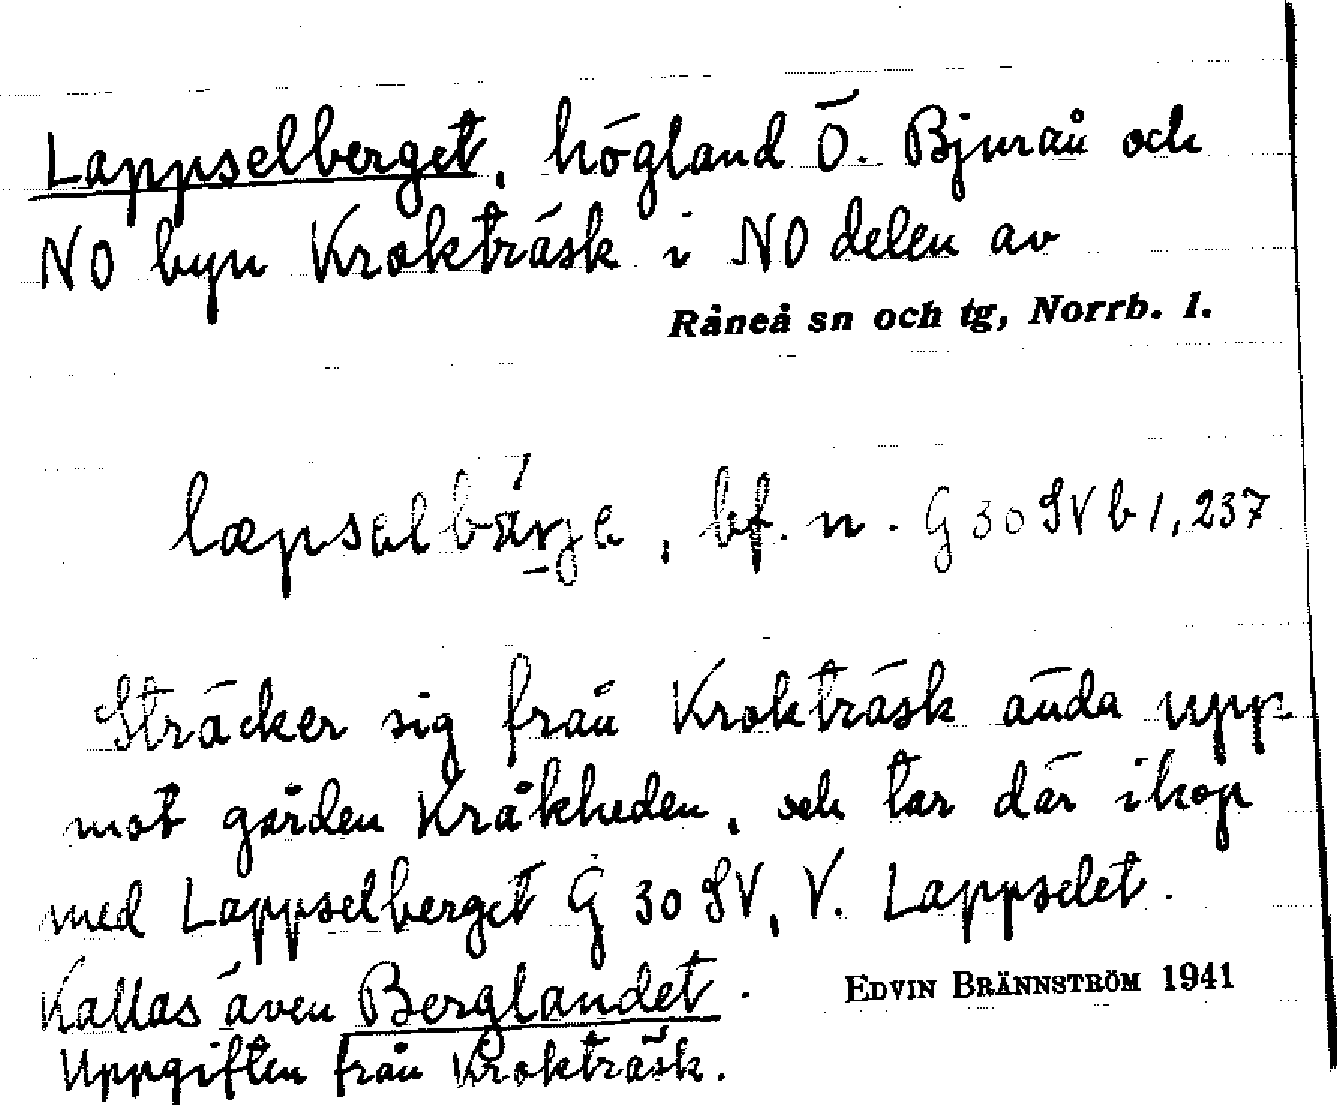 Lappselberget, högland Ö. Bjurån och
NO byn Krokträsk i NO delen av
Råneå sn och tg, Norrb. l.
læpsəlbä́rjə, bf. n. G 30 SV b 1, 237
Sträcker sig från Krokträsk ända upp
mot gården Kråkheden, och tar där ihop
med Lappselberget G 30 SV, V. Lappselet.
Kallas även Berglandet.
EDVIN BRÄNNSTRÖM 1941
Uppgiften från Krokträsk.